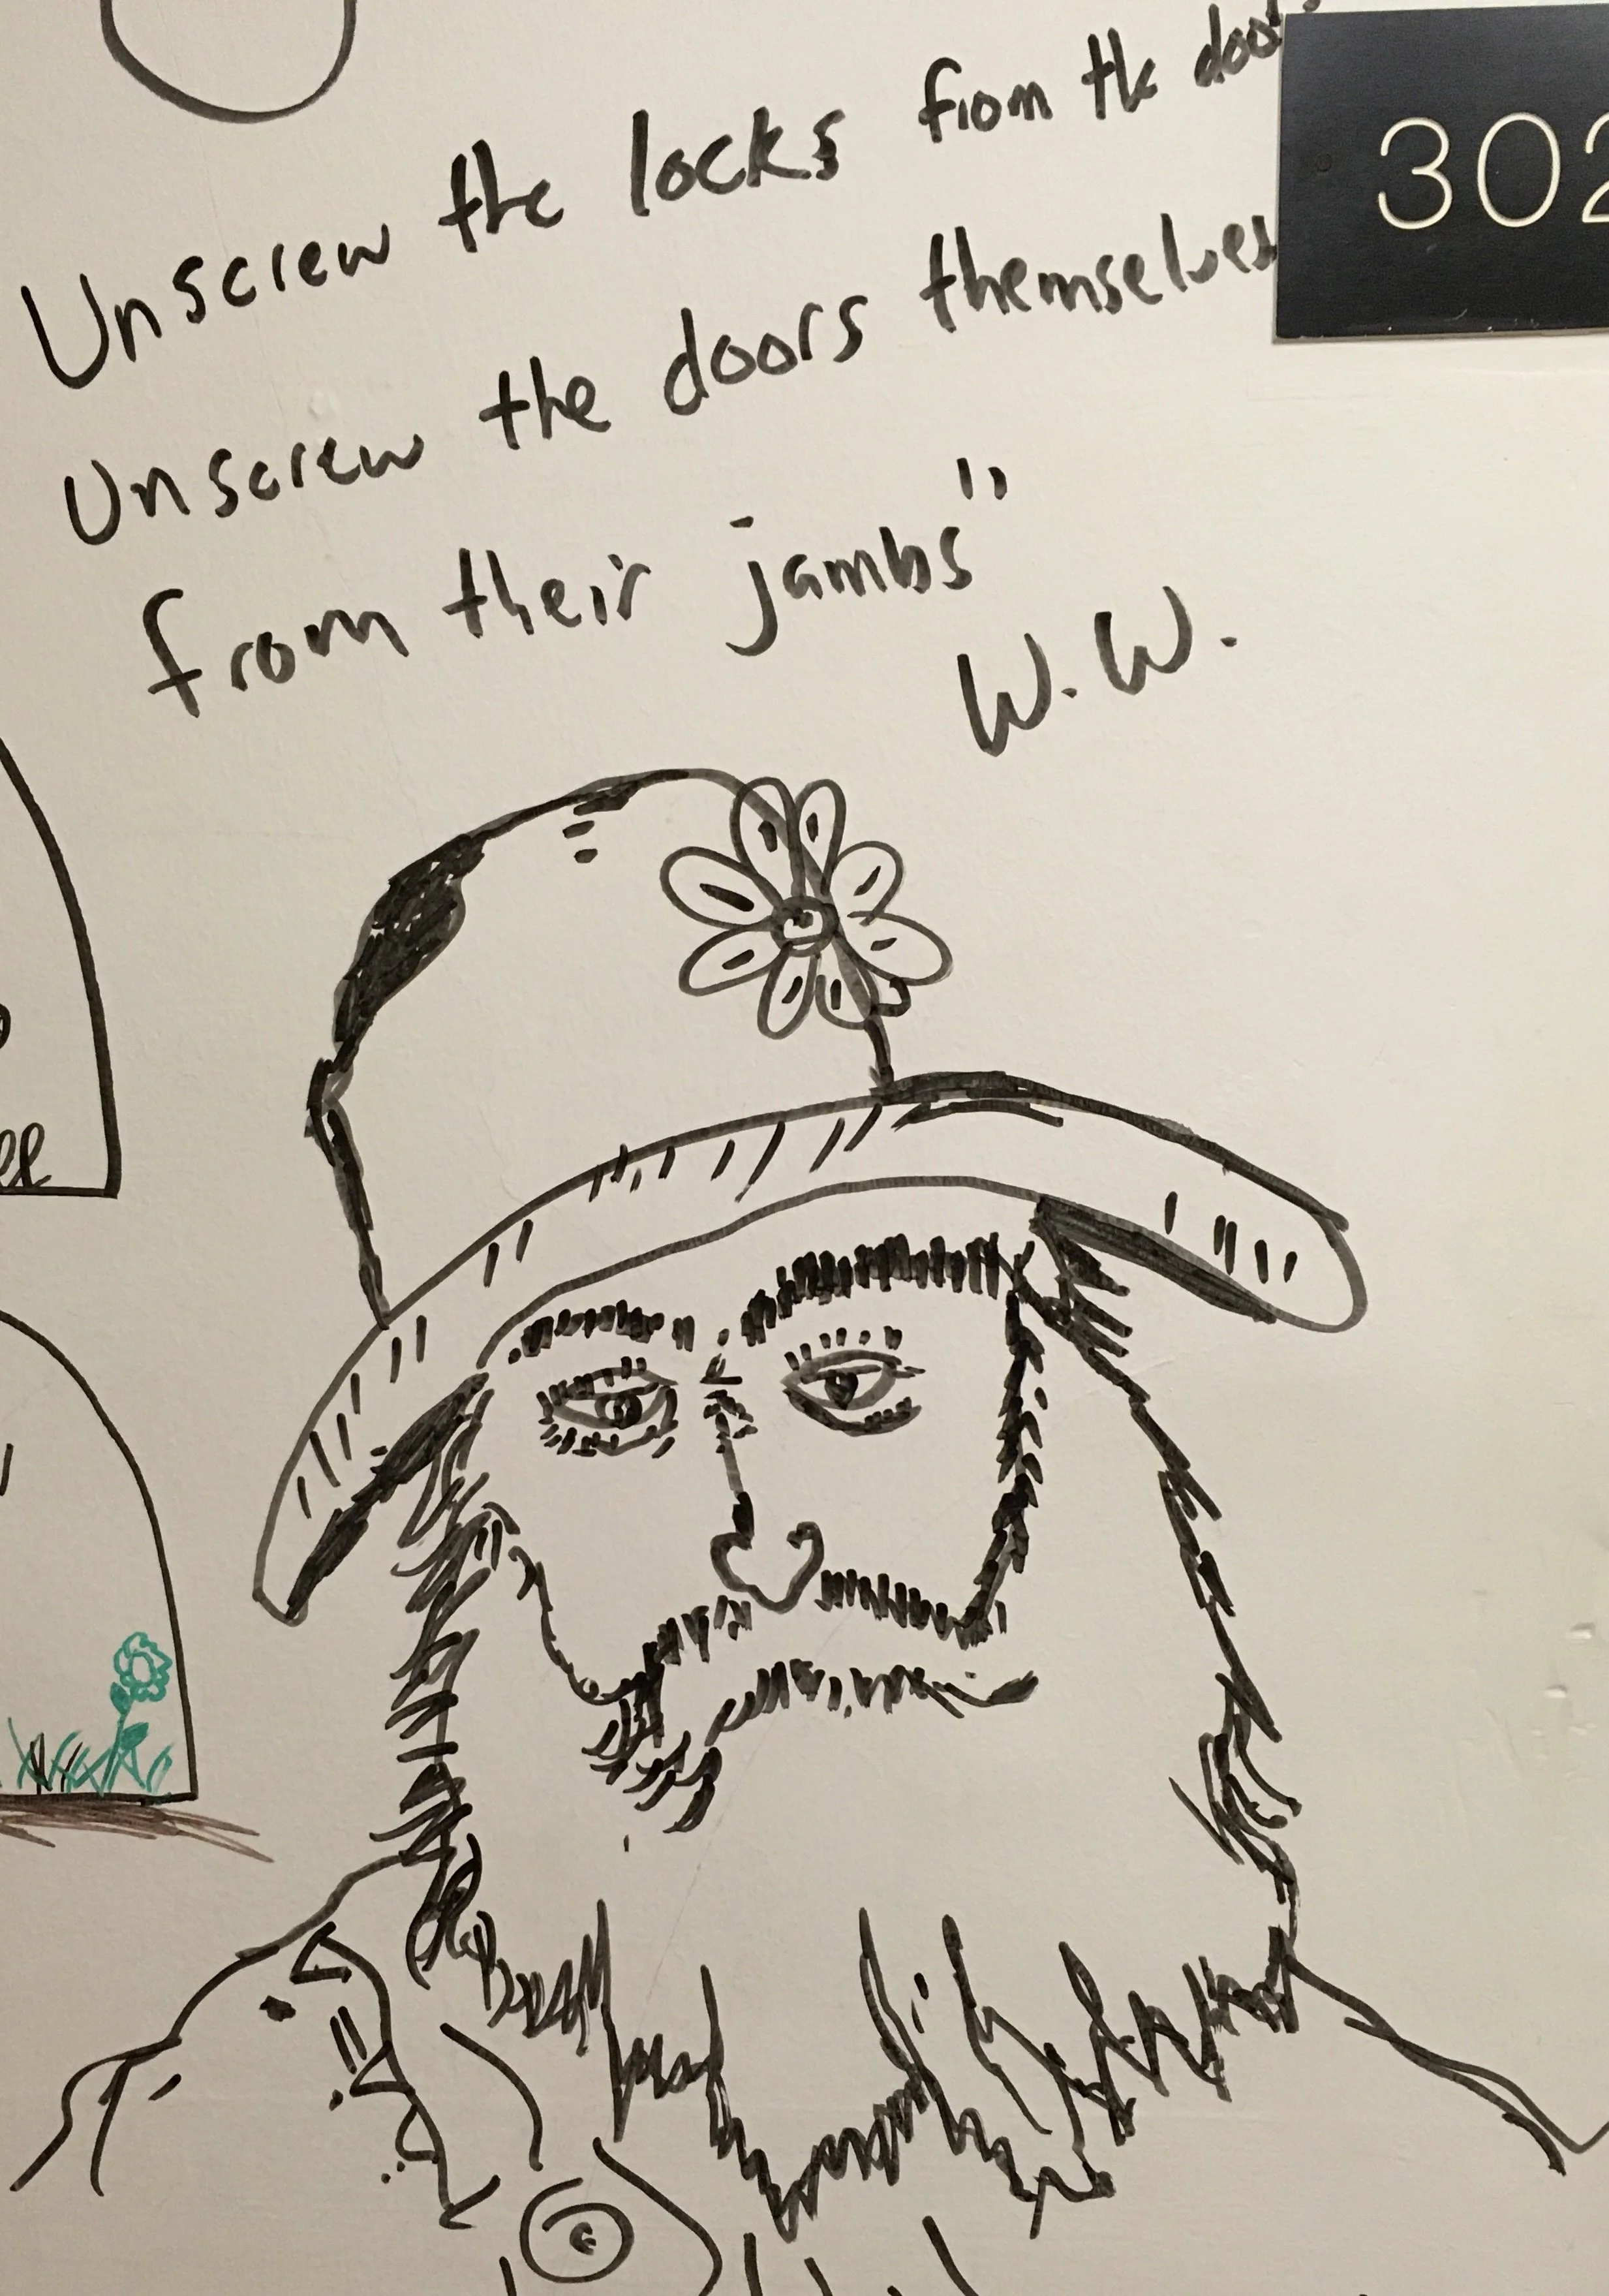 Unscrew the locks from the doors
302
Unscrew the doors themselves
from their jambs"
W.W.